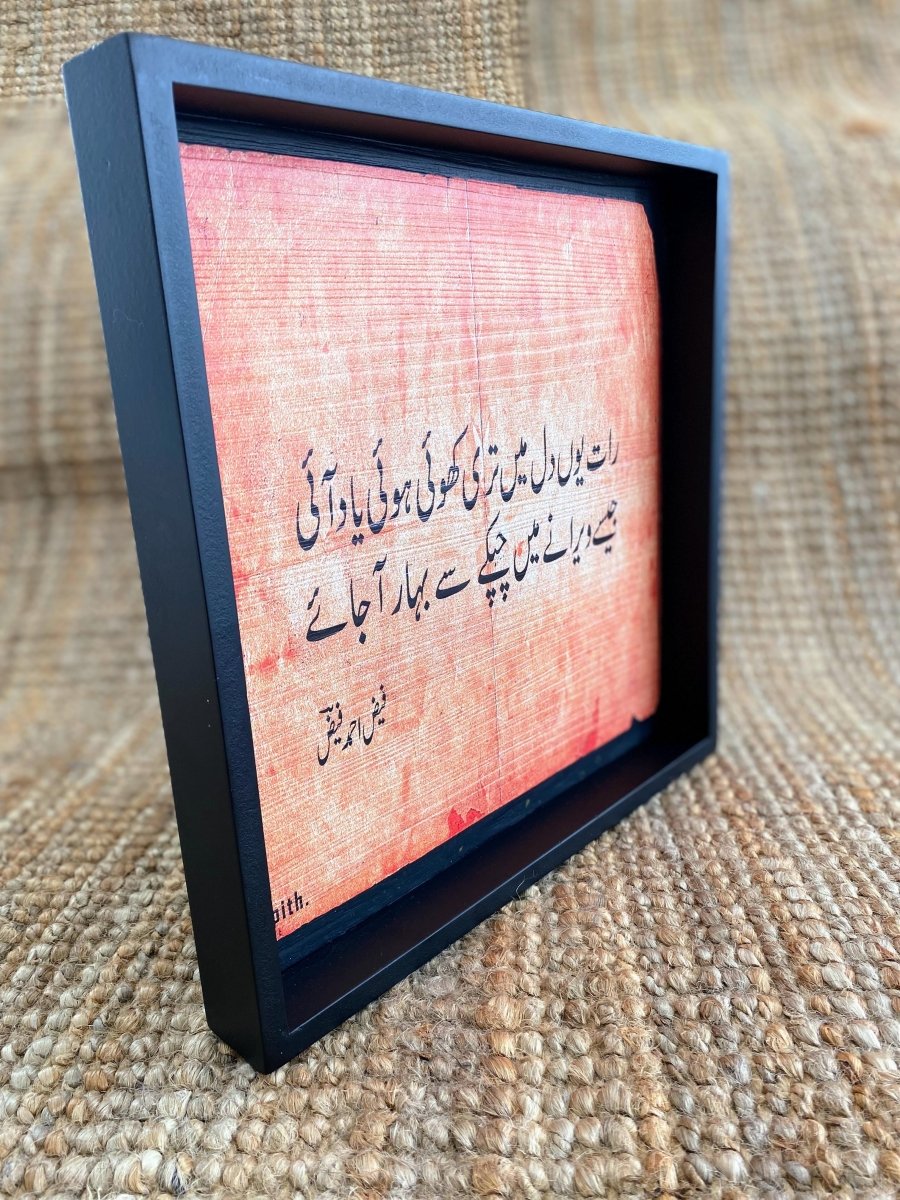 رات یوں دل میں تری کھوئی ہوئی یاد آئی
جیسے ویرانے میں چپکے سے بہار آ جائے
فیض احمد فیضؔ
oith.